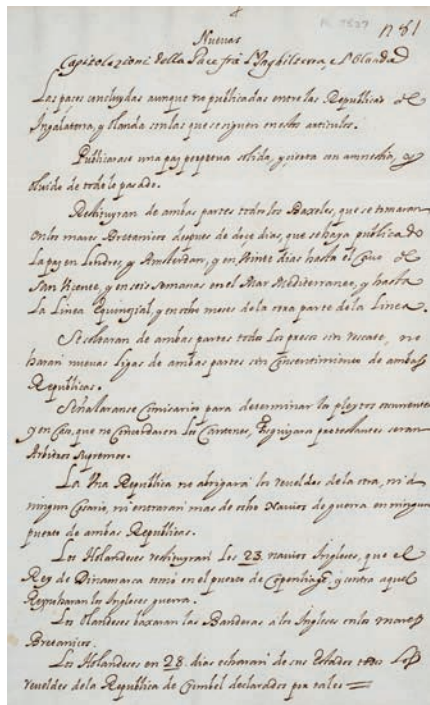 n 61
Nuevas
Capitolazioni della Pace frà l'Inghilterra, e l'Olanda
Las pazes concluydas aunque no publicadas entre las Republicas de
Ingalaterra, y Olanda son las que se siguen en ocho articulos.
Publicarase una paz perpetua solida, y cierta con amnestia, y
oluido de todo lo pasado.
Restituyran de ambas partes todos los Baxeles, que se tomaran
en los mares Bretanicos despues de doze dias, que se haya publicado
la paz en Londres, y Amsterdan, y en veinte dias hasta el Cavo de
San Vicente, y en seis semanas en el Mar Mediterraneo, y hasta
la Linea Equinozial, y en ocho meses de la otra parte de la Linea.
Se soltaran de ambas partes todos los presos sin rescate, no
haran nuevas ligas de ambas partes sin Consentimiento de ambas
Republicas.
Señalaranse Comisarios para determinar los pleytos
y en Caso, que no Concordasen los Cantones, Esguizaros protestantes seran
Arbitros supremos.
La Una Republica no abrigará los reueldes de la otra, ni á
ningun Cosario, ni entraran mas de ocho Navios de guerra en ningun
puerto de ambas Republicas.
Los Holandeses restituyran los 23 navios Ingleses, que el
Rey de Dinamarca tomó en el puerto de y contra aquel
los Ingleses guerra.
Los Olandeses baxaran las Banderas a los Ingleses en los mares
Bretanicos.
Los Holandeses en 28 dias echaran de sus Estados todos los
reueldes de la Republica de declarados por tales